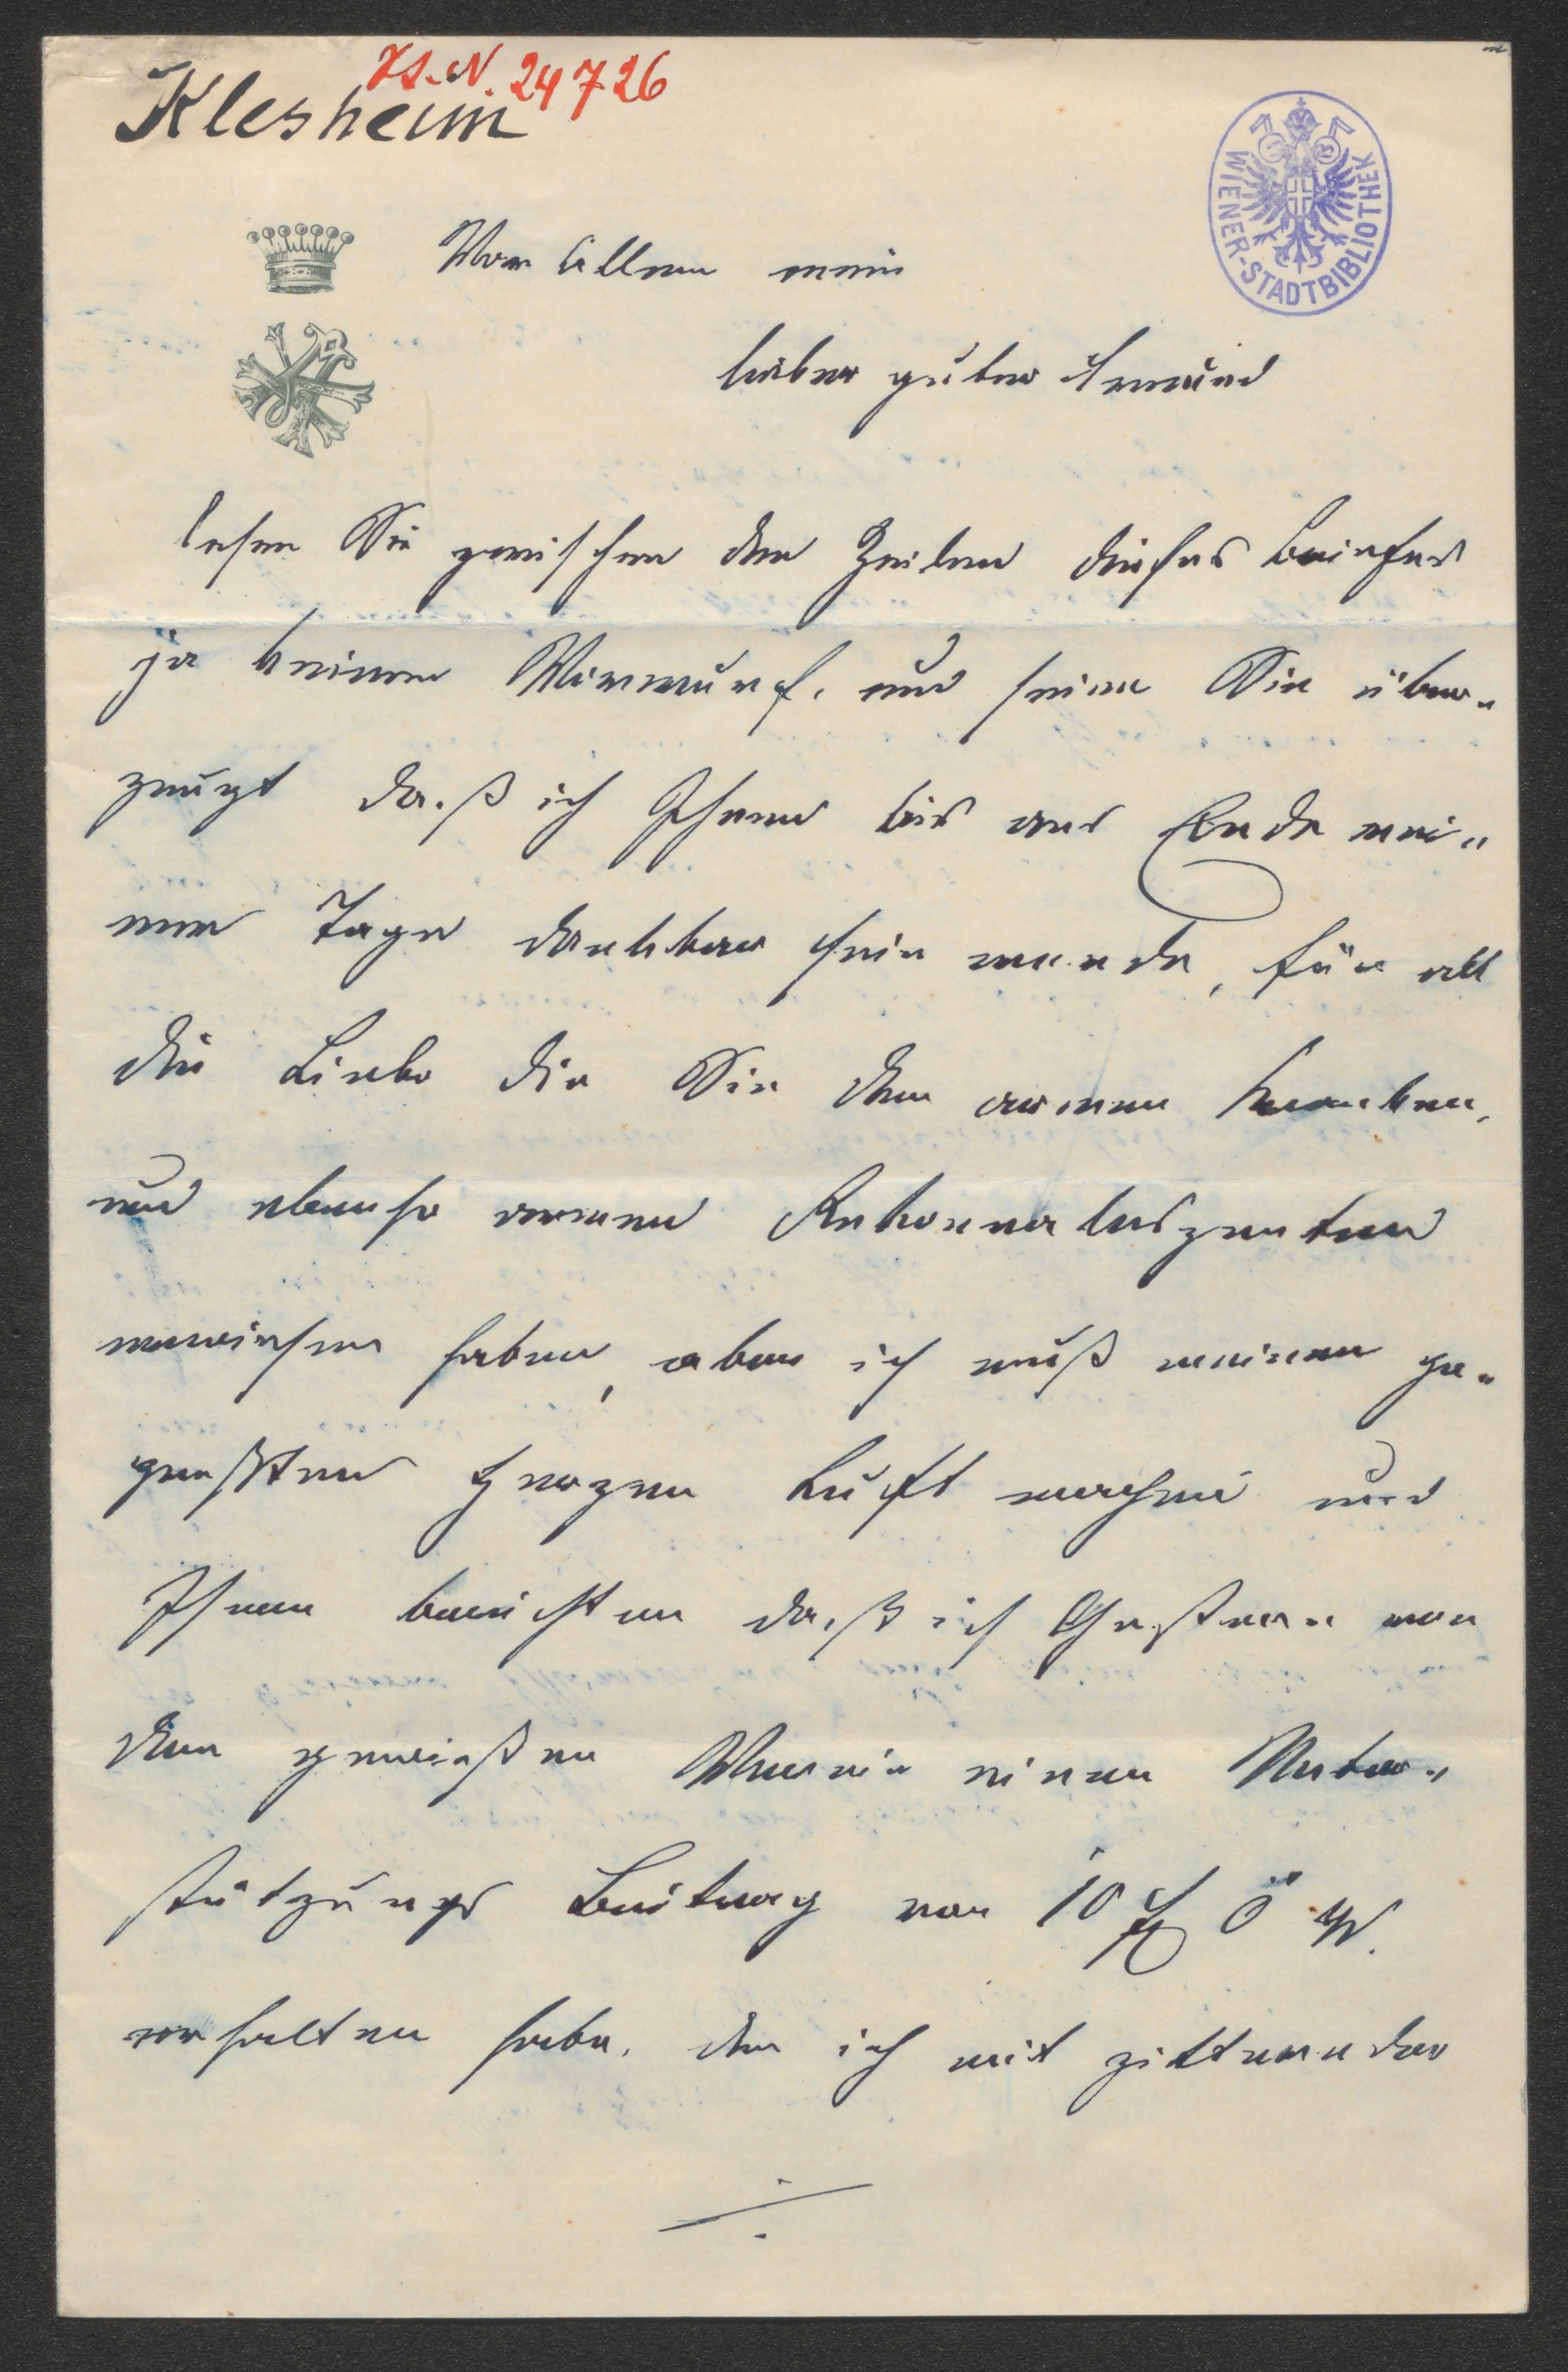 H.I.N. 24726
Klesheim
WIENER-STADTBIBLIOTHEK
Vor Allem mein
lieber guter Freund
lesen Sie zwischen den Zeilen dieses Briefes
ja keinen Vorwurf, und seien Sie über„
zeugt daß ich Ihnen bis ans Ende mei„
ner Tage dankbar sein werde, für all
die Liebe die Sie dem armen Kranken,
und ebenso armen Rekonvaleszenten
erwiesen haben, aber ich muß meinem ge„
preßten Herzen Luft machen und
Ihnen berichten daß ich Gestern von
dem gewissen Verein einen Unter„
stützungs Beitrag von 10 fl ö W.
erhalten habe, den ich mit zitternder